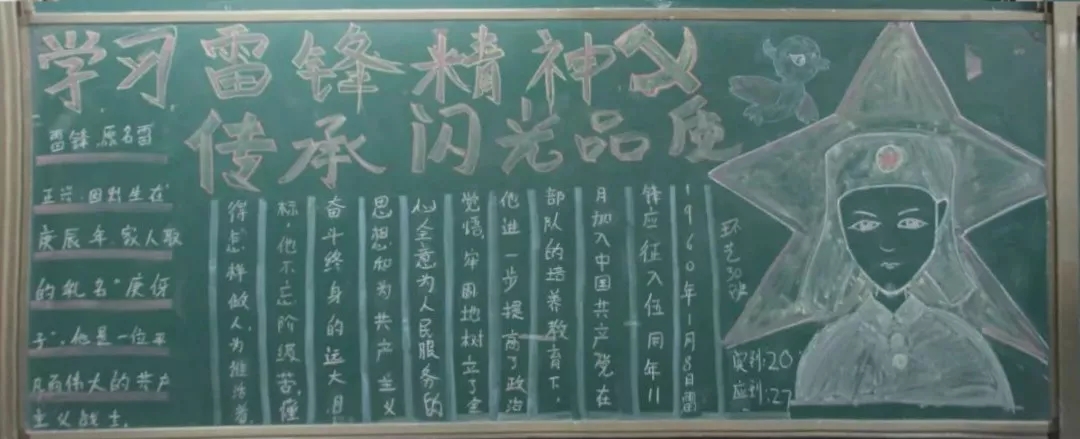 学习雷锋精神
传承闪光品质
雷锋,原名雷
正兴,因出生在
庚辰年,家人取
的乳名“庚伢
子”,他是一位平
凡而伟大的共产
主义战士.
1960年1月8日雷
锋应征入伍同年11
月加入中国共产党在
部队的培养教育下,
他进一步提高了政治
觉悟,牢固地树立了全
心全意为人民服务的
思想和为共产主义
奋斗终身的远大目
标,他不忘阶级苦,懂
得怎样做人,为谁活着,
环艺30班
实到:20
应到:27